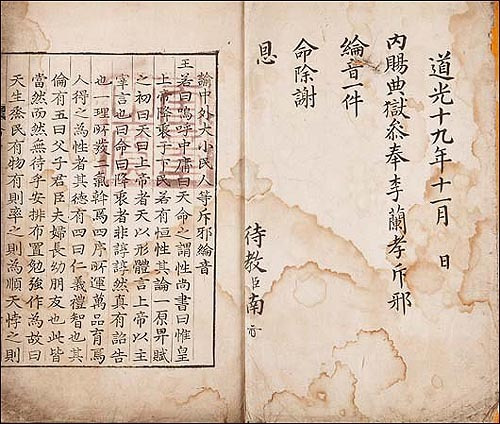 道光十九年十一月 日
內賜典獄參奉李蘭孝斥邪
綸音一件
命除謝
恩
待教臣南
諭中外大小民人等斥邪綸音
王若曰嗚呼中庸曰天命之謂性尚書曰惟皇
上帝降衷于下民若有恒性其論一原畀賦
之初曰天曰上帝者天以形體言上帝以主
宰言也曰命曰降衷者非諄諄然真有詔告
也一理所發二氣斡焉四序所運萬品育焉
人得之爲性者其德有四曰仁義禮智也其
倫有五曰父子君臣夫婦長幼朋友也此皆
當然而然無待乎安排布置勉強作爲故曰
天生烝民有物有則率之則爲順天悖之則